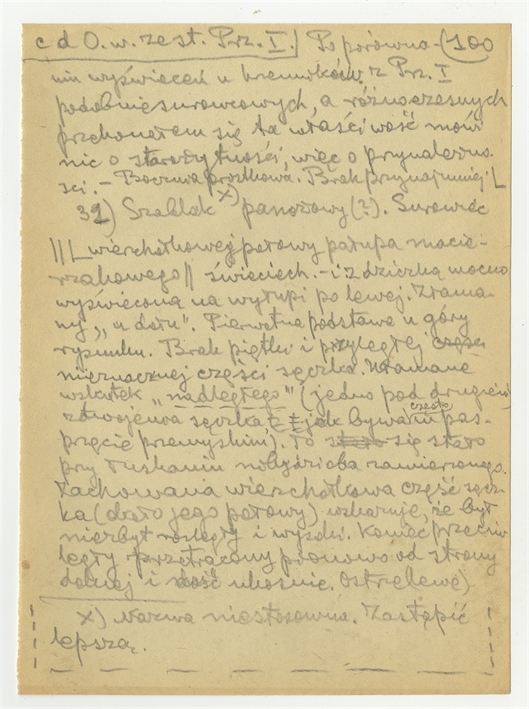 c d O. w. zest. Prz. I.) Po porówna- (100
niu wyświeceń u kremników z Prz. I
podobnie surowcowych, a różnoczesnych
przekonałem się ta właściwość mówi
nic o starożytności, więc o przynależno
ści. - Boczna prostkowa. Brak przynajmniej L
31) Szablak x) panożowy (?). Surowiec
|| L wierzchołkowej połowy
|| świeciech. - i z dziczką mocno
wyświeconą na wyłupi po lewej. Złama-
ny „u dołu". Pierwotna podstawa u góry
rysunku. Brak piętki i przyległej części
nieznacznej części sęczka. Ułamane
wskutek „nadległego" (jedno pod drugiem)
zdwojenia sęczka, jak bywa często w pas-
przemyskim). To stało się stało
przy łuskaniu zamierzonego.
Zachowana wierzchołkowa część sęcz-
ka (dało jego połowy) wskazuje, że był
niezbyt rozległy i wysoki. Koniec przeciw
legły przetrącony pionowo od strony
dolnej i dość ukośnie. Ostrze lewe)
x) Nazwa niestosowna. Zastąpić
lepszą.